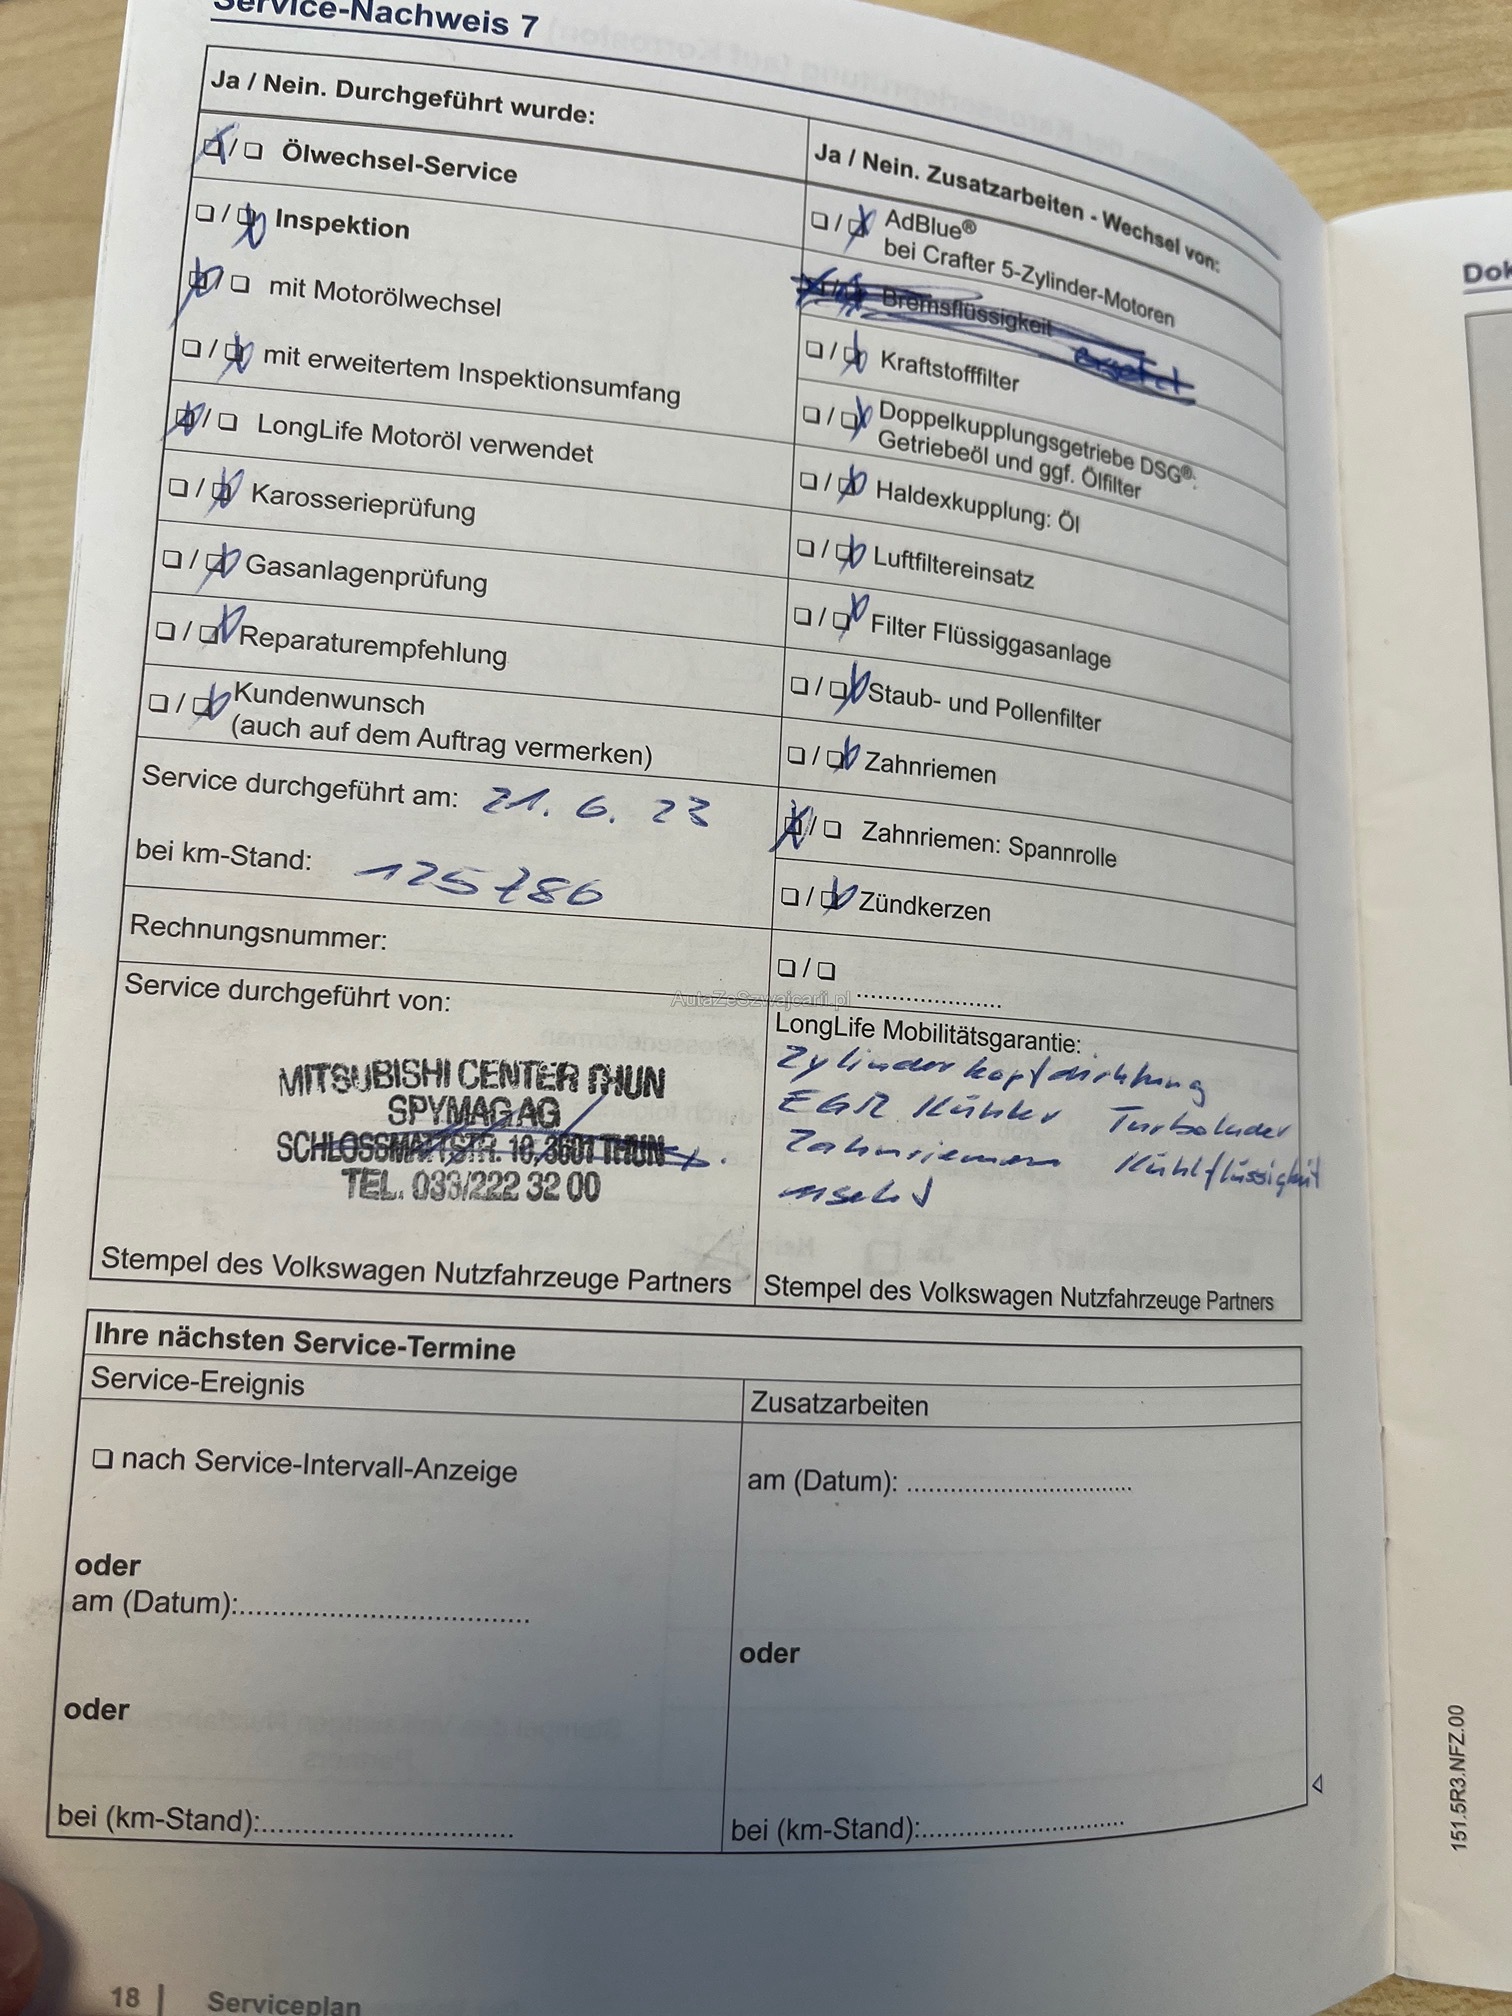 Service-Nachweis 7
Ja / Nein. Durchgeführt wurde:
Ölwechsel-Service
Inspektion
mit Motorölwechsel
mit erweitertem Inspektionsumfang
LongLife Motoröl verwendet
Karosserieprüfung
Gasanlagenprüfung
Reparaturempfehlung
Kundenwunsch
(auch auf dem Auftrag vermerken)
Service durchgeführt am: 21. 6. 23
bei km-Stand: 125786
Rechnungsnummer:
Service durchgeführt von:
MITSUBISHI CENTER THUN
SPYMAG AG
SCHLOSSMATTSTR. 10, 3601 THUN
TEL. 033/222 32 00
Stempel des Volkswagen Nutzfahrzeuge Partners
Ja / Nein. Zusatzarbeiten - Wechsel von:
AdBlue®
bei Crafter 5-Zylinder-Motoren
Bremsflüssigkeit ersetzt
Kraftstofffilter
Doppelkupplungsgetriebe DSG®:
Getriebeöl und ggf. Ölfilter
Haldexkupplung: Öl
Luftfiltereinsatz
Filter Flüssiggasanlage
Staub- und Pollenfilter
Zahnriemen
Zahnriemen: Spannrolle
Zündkerzen
AutaZeSzwajcarii.pl
LongLife Mobilitätsgarantie:
Zylinderkopfdichtung
EGR Kühler Turbolader
Zahnriemen Kühlflüssigkeit
Stempel des Volkswagen Nutzfahrzeuge Partners
Ihre nächsten Service-Termine
Service-Ereignis
nach Service-Intervall-Anzeige
oder
am (Datum):
oder
bei (km-Stand):
Zusatzarbeiten
am (Datum):
oder
bei (km-Stand):
18 | Serviceplan
Dok
151.5R3.NFZ.00